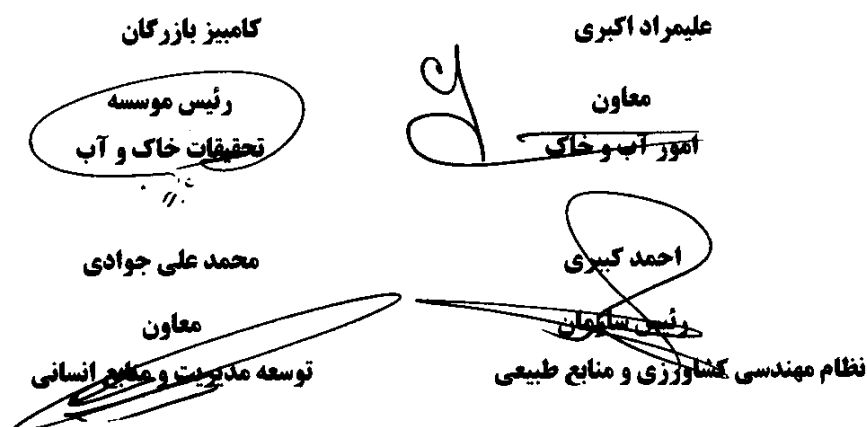 علیمراد اکبری
معاون
امور آب و خاک
کامبیز بازرگان
رئیس موسسه
تحقیقات خاک و آب
احمد کبیری
رئیس سازمان
نظام مهندسی کشاورزی و منابع طبیعی
محمد علی جوادی
معاون
توسعه مدیریت و منابع انسانی